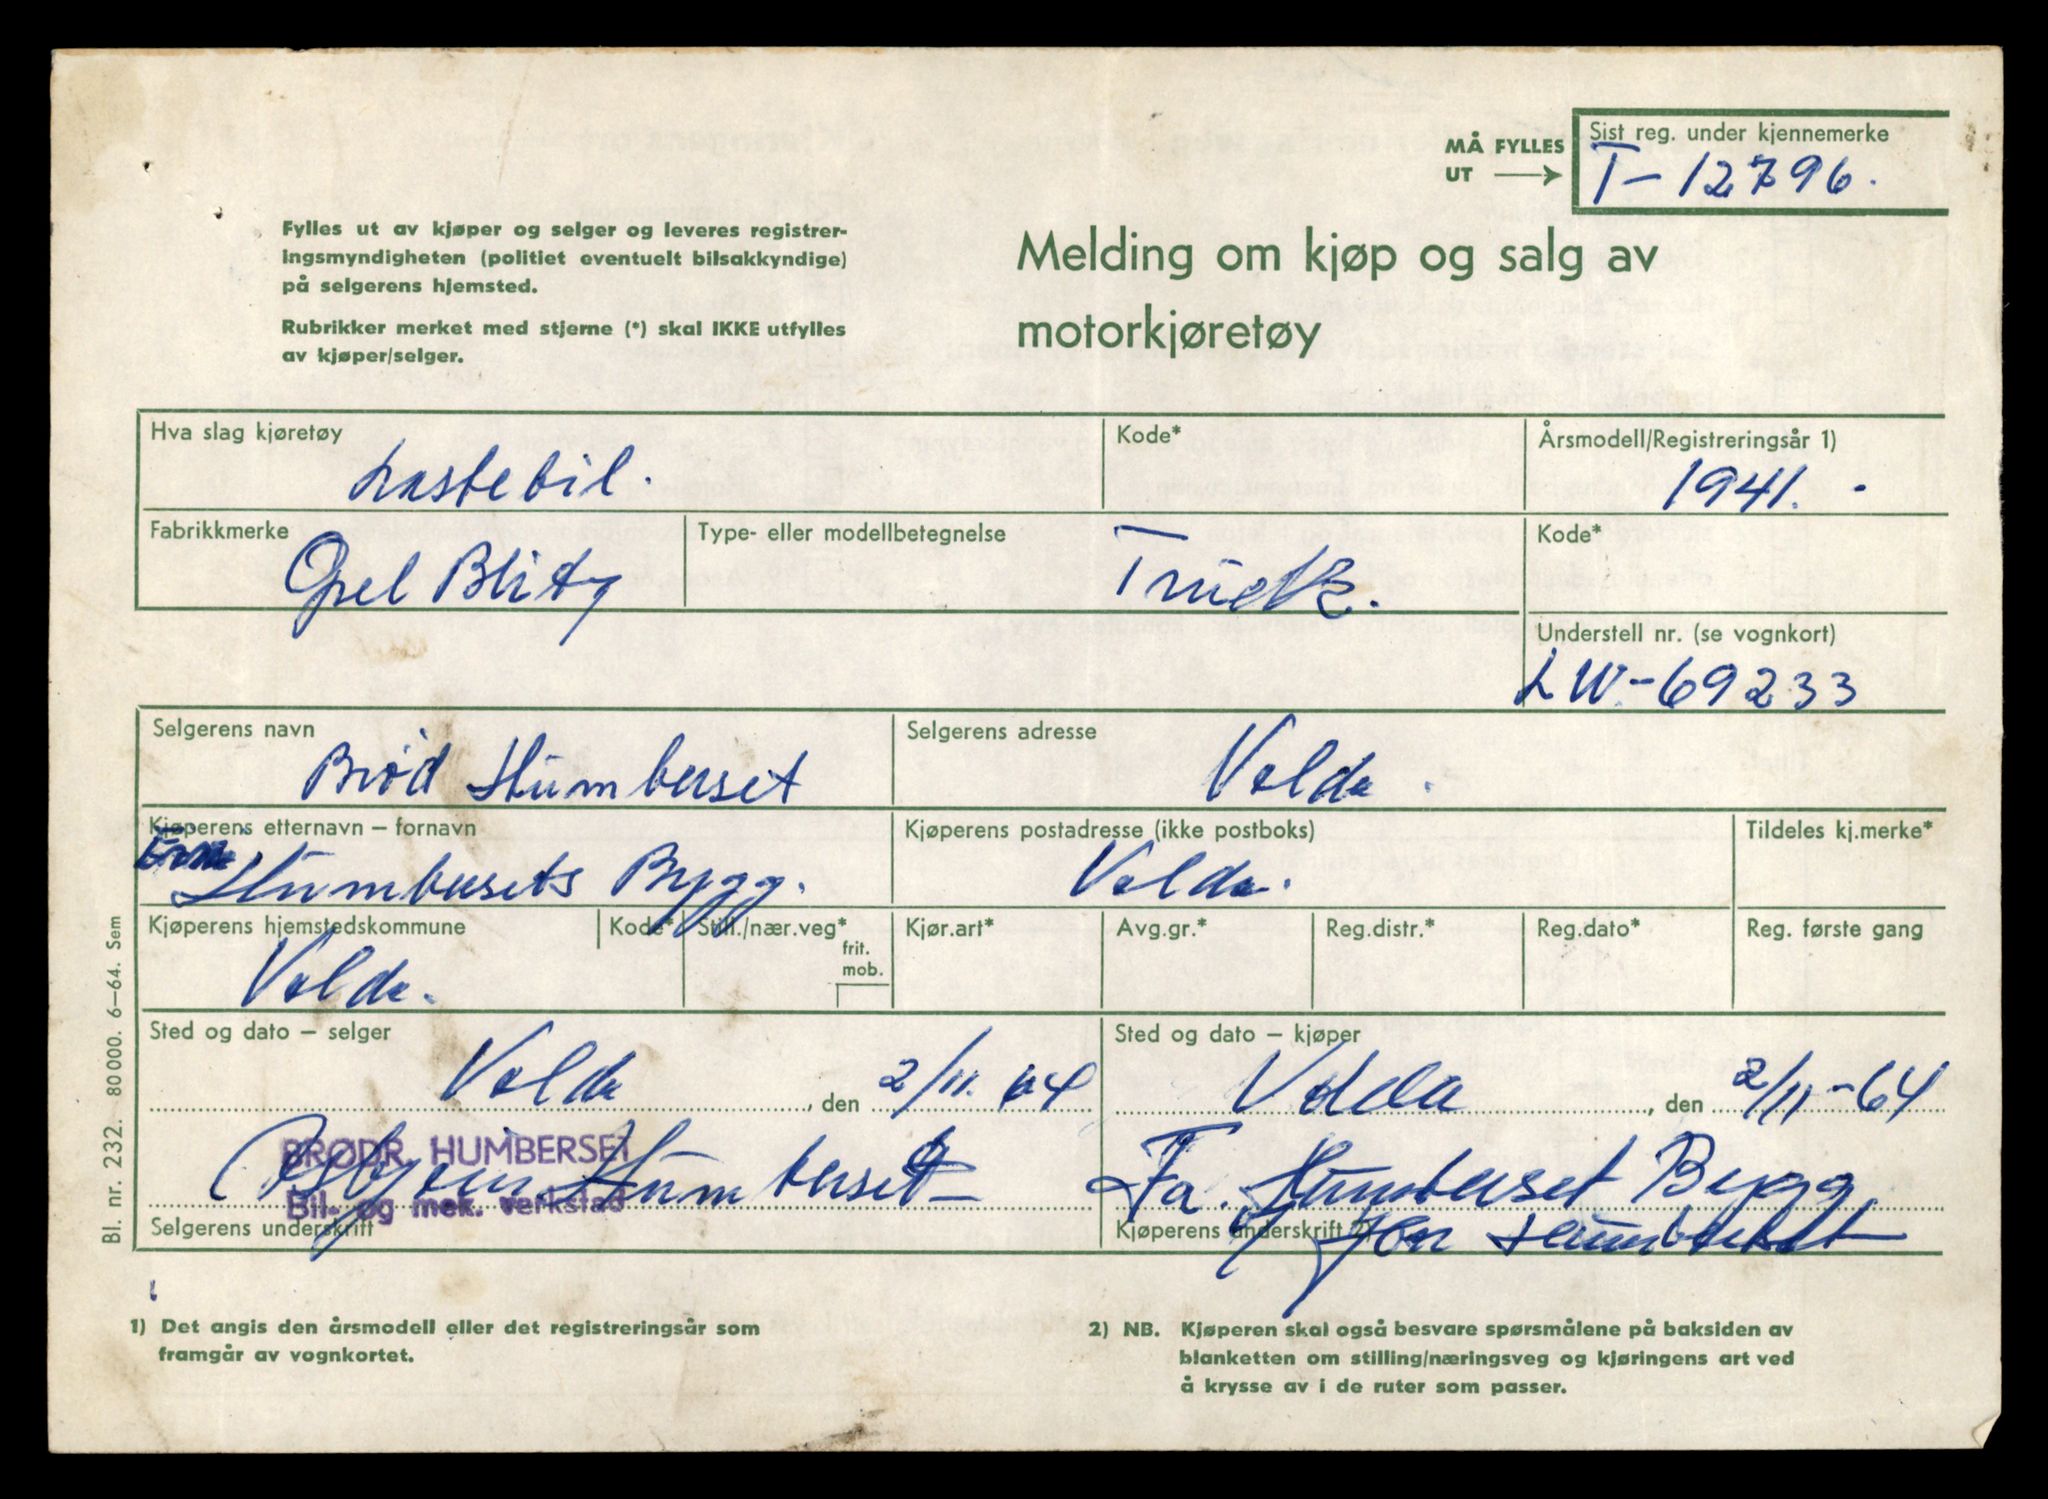 MÅ FYLLES UT
Sist reg. under kjennemerke
T-12796.
Fylles ut av kjøper og selger og leveres registrer-
ingsmyndigheten (politiet eventuelt bilsakkyndige)
på selgerens hjemsted.
Rubrikker merket med stjerne (*) skal IKKE utfylles
av kjøper/selger.
Melding om kjøp og salg av
motorkjøretøy
Hva slag kjøretøy
Lastebil.
Kode*
Årsmodell/Registreringsår 1)
1941.
Fabrikkmerke
Opel Blitz
Type- eller modellbetegnelse
Truck.
Kode*
Understell nr. (se vognkort)
LW-69233
Selgerens navn
Brød Humberset
Selgerens adresse
Volda.
Kjøperens etternavn – fornavn
Humbersets Bygg.
Kjøperens postadresse (ikke postboks)
Volda.
Tildeles kj.merke*
Kjøperens hjemstedskommune
Volda.
Kode*
Still./nær.veg*
frit.
mob.
Kjør.art*
Avg.gr.*
Reg.distr.*
Reg.dato*
Reg. første gang
Sted og dato – selger
Volda, den 2/11. 64
Sted og dato – kjøper
Volda, den 2/11-64
BRØDR. HUMBERSET
Bil- og mek. verkstad
Asbjørn Humberset
Selgerens underskrift
Fa. Humberset Bygg
Kjøperens underskrift 2)
Jon Humberset
Bl. nr. 232. 80000. 6–64. Sem
1) Det angis den årsmodell eller det registreringsår som
framgår av vognkortet.
2) NB. Kjøperen skal også besvare spørsmålene på baksiden av
blanketten om stilling/næringsveg og kjøringens art ved
å krysse av i de ruter som passer.